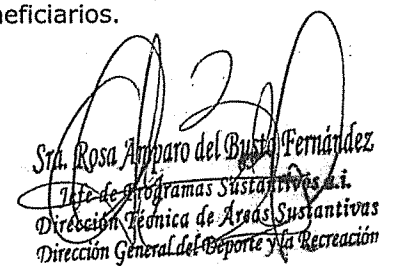 neficiarios.
Sra. Rosa Amparo del Busto Fernández
Jefe de Programas Sustantivos a.i.
Dirección Técnica de Áreas Sustantivas
Dirección General del Deporte y la Recreación